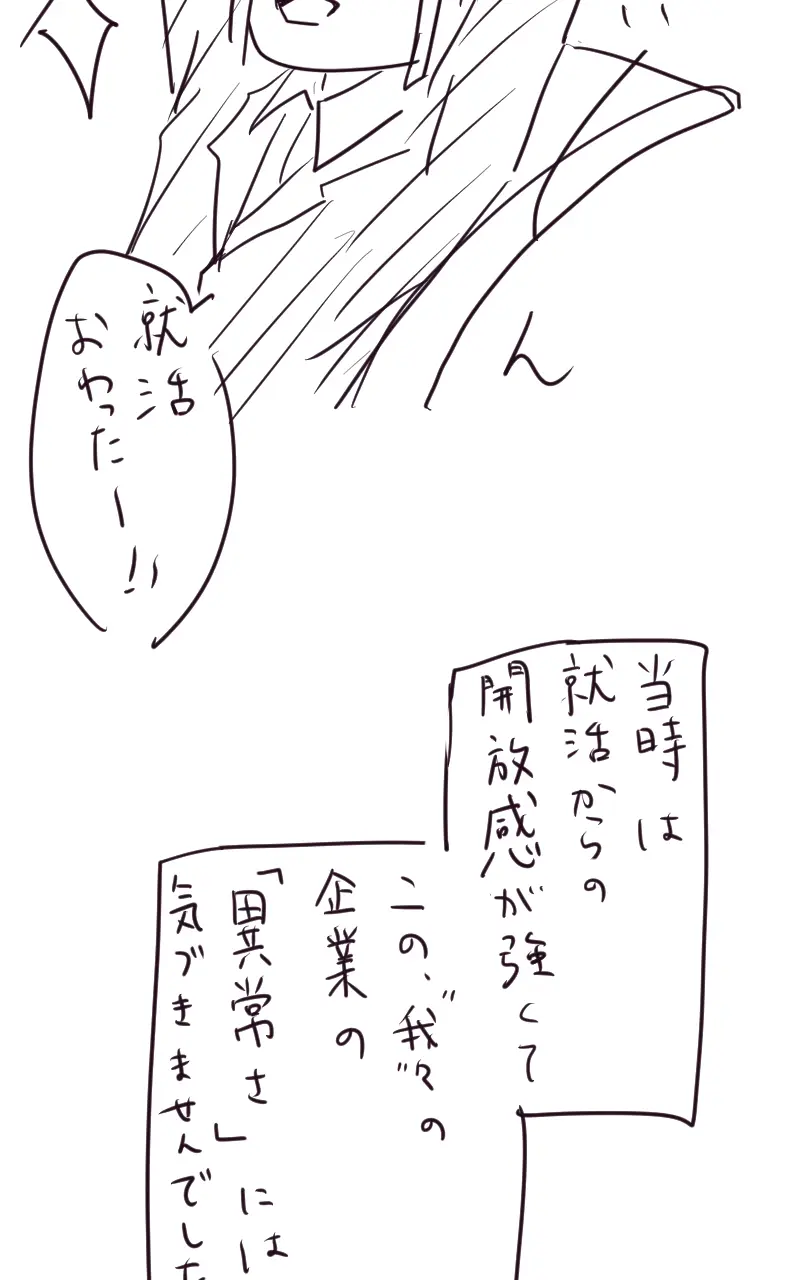 ん
就活
おわったー!!
当時は
就活からの
開放感が強くて
この、"我々"の
企業の
「異常さ」には
気づきませんでした